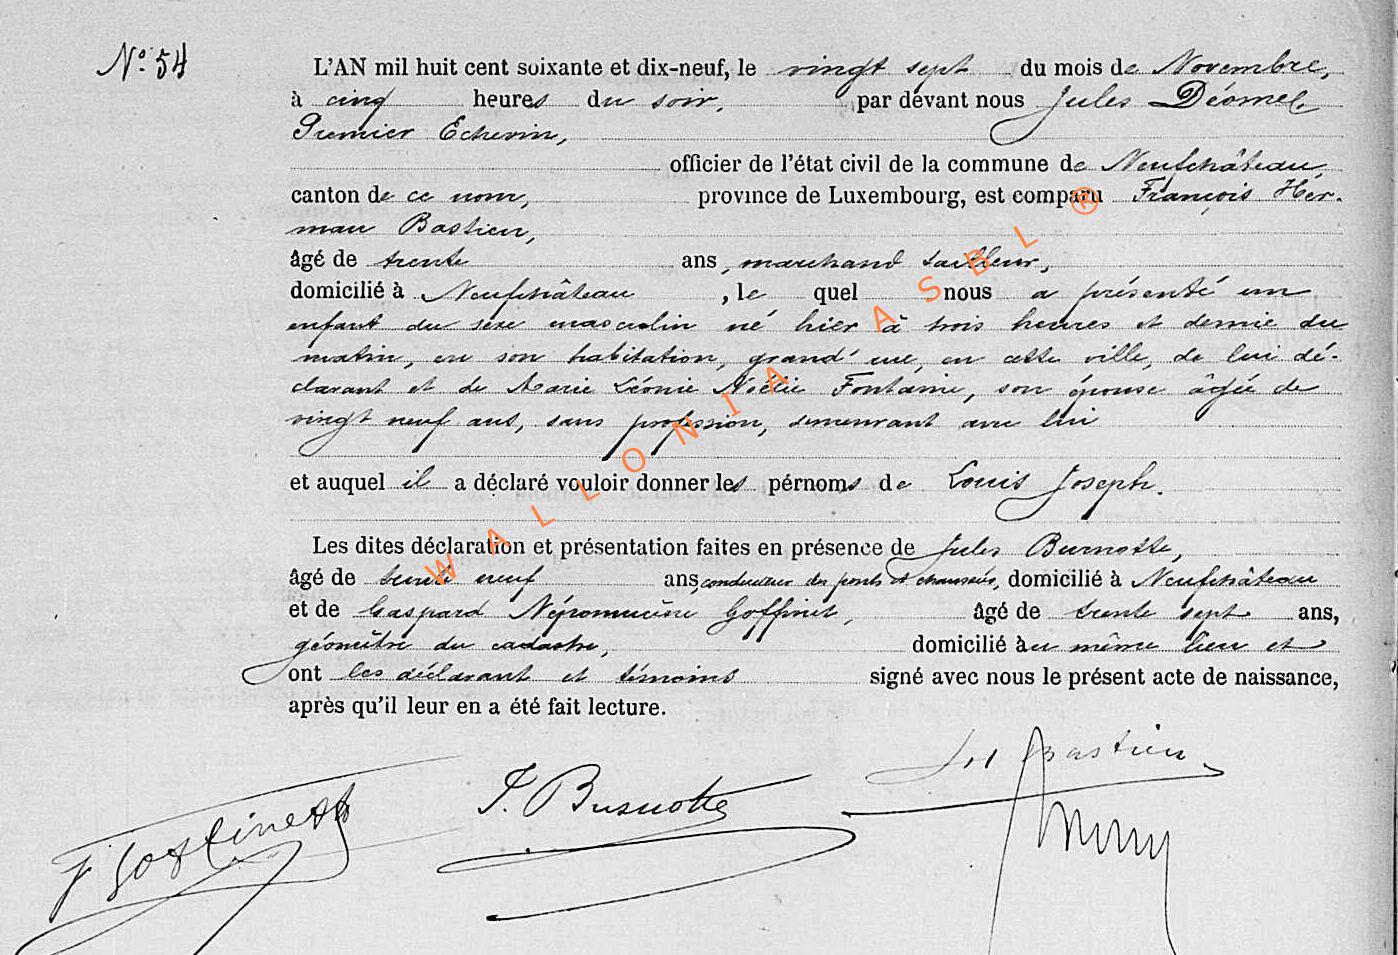 N° 54
L'AN mil huit cent soixante et dix-neuf, le vingt sept du mois de Novembre,
à cinq heures du soir, par devant nous Jules Déome
Premier Echevin,
officier de l'état civil de la commune de Neufchâteau
canton de ce nom, province de Luxembourg, est comparu François Her-
man Bastien,
âgé de trente ans, marchand tailleur,
domicilié à Neufchâteau, le quel nous a présenté un
enfant du sexe masculin né hier à trois heures et demie du
matin, en son habitation, grand' rue, en cette ville, de lui dé-
clarant et de Marie Léonie Noélie Fontaine, son épouse âgée de
vingt neuf ans, sans profession, demeurant avec lui
et auquel il a déclaré vouloir donner les pérnoms de Louis Joseph.
Les dites déclaration et présentation faites en présence de Jules Burnotte,
âgé de trente neuf ans, conducteur des ponts et chaussées, domicilié à Neufchâteau
et de Gaspard Népomucène Goffinet, âgé de trente sept ans,
géomètre du cadastre, domicilié au même lieu et
ont les déclarant et témoins signé avec nous le présent acte de naissance,
après qu'il leur en a été fait lecture.
Bastien
J. Burnotte
Goffinet
WALLONIA ASBL ®